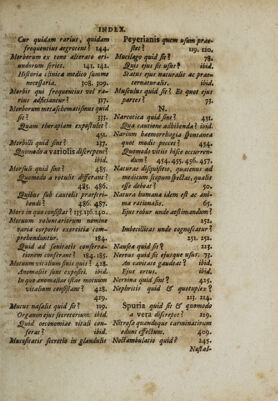 INDEX.
Cur quidam rarius, quidam
frequentius ægrotent? 144.
Morborum ex tono alterato ori-
undorum series. 141. 142.
Historia clinica medico summe
necessaria. 308. 309.
Morbis qui frequentius vel ra-
rius adficiantur? 317.
Morborum metaschematismus quid
sit? 331.
Quam therapiam expostulet?
450.
Morbilli quid sint? 237.
Quomodo a variolis discrepent?
ibid.
Morsuli quid sint? 485.
Quomodo a rotulis differant?
485. 486.
Quibus sub cautelis præscri-
bendi? 486. 487.
Mors in quo consistat? 135.136.140.
Motuum voluntariorum nomine
varia corporis exercitia com-
prehenduntur. 184.
Quid ad sanitatis conserva-
tionem conferant? 184. 185.
Motuum vitalium finis quis? 428.
Anomaliæ sunt exposisi. ibid.
In qua anomaliæ istæ motuum
vitalium consistant? 428.
429.
Mucus nasalis quid sit? 119.
Organon ejus secretorium. ibid.
Quid oeconomiæ vitali con-
ferat? ibid.
Mucositatis secretio in glandulis
Peyerianis quem usum præ-
stet? 119. 120.
Mucilago quid sit? 78.
Quis ejus sit usus? ibid.
Status ejus naturalis ac præ-
ternaturalis. ibid.
Musculus quid sit? Et quot ejus
partes? 73.
N.
Narcotica quid sint? 431.
Qua cautione adhibenda? ibid.
Narium haemorrhagia spontanea
quot modis peccet? 454.
Quomodo vitiis hisce occurren-
dum? 454. 455. 456. 457.
Naturae disquisitio, quatenus ad
medicum scopum spectat, qualis
esse debeat? 50.
Natura humana idem est ac ani-
ma rationalis. 65.
Ejus robur unde aestimandum?
252.
Imbecillitas unde cognoscatur?
251. 252.
Nausea quid sit? 225.
Nervus quid sit ejusque usus. 73.
An cavitate gaudeat? ibid.
Ejus ortus. ibid.
Nervina quid sint? 425.
Nephritis quid & quotuplex?
213. 214.
Spuria quid sit & quomodo
a vera discrepet? 219.
Nitrosa quandoque carminativum
edunt effectum. 409.
Noctambulatio quid? 245.